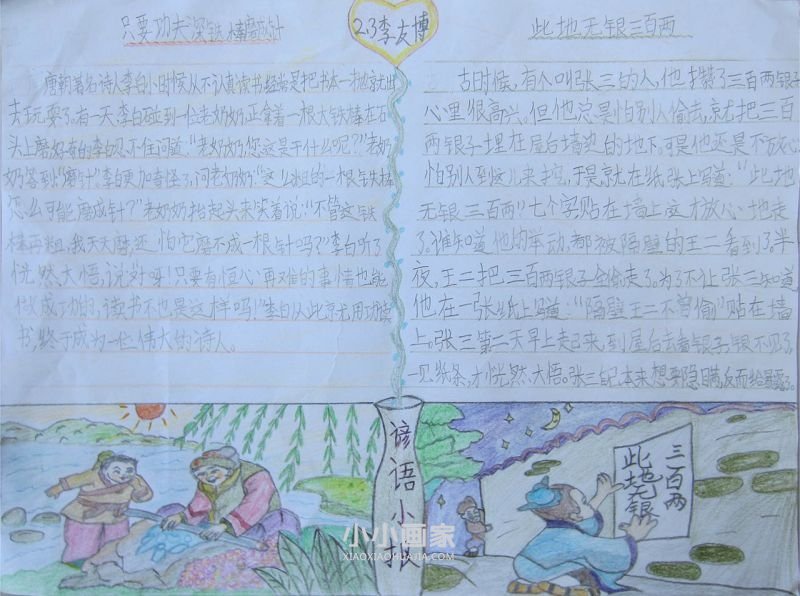 只要功夫深铁棒磨成针
唐朝著名诗人李白小时候从不认真读书经常是把书本一抛就出
去玩耍了。有一天,李白碰到一位老奶奶,正拿着一根大铁棒在石
头上磨,好奇的李白忍不住问道:"老奶奶,您这是干什么呢?"老奶
奶答到"磨针"李白更加奇怪了,问老奶奶:"这么粗的一根铁棒
怎么可能磨成针?"老奶奶抬起头来笑着说:"不管这铁
棒再粗,我天天磨,还怕它磨不成一根针吗?"李白听了
恍然大悟,说好呀!只要有恒心,再难的事情也能
做成功的,读书不也是这样吗!"李白从此
书,终于成为一位伟大的诗人。
2.3李友博
此地无银三百两
古时候,有个叫张三的人,他攒了三百两银子
心里很高兴。但他总是怕别人偷去,就把三百
两银子埋在屋后墙边的地下。可是他还是不放心
怕别人到这儿来挖,于是就在纸张上写道:"此地
无银三百两"七个字贴在墙上这才放心地走
了。谁知道他的举动,都被隔壁的王二看到了。半
夜,王二把三百两银子全偷走了。为了不让张三知道
他在一张纸上写道:"隔壁王二不曾偷"贴在墙
上。张三第二天早上起来,到屋后去看银子,银不见了
一见纸条,才恍然大悟。张三 本来想要隐瞒,反而给暴露了。
谚语小报
三百两
此地无银
小小画家
XIAOXIAOHUAJIA.COM